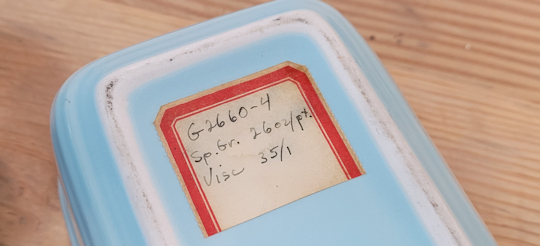 G2660-4
Sp.Gr. 26oz/pt.
Visc 35/1